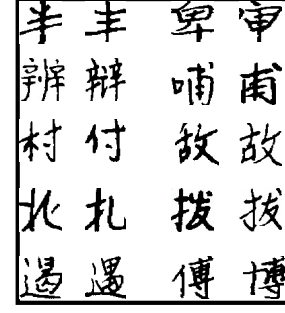 半 丰 卑 审
辨 辩 哺 甫
村 付 敌 故
扎 拨 拔
遏 遇 傅 博